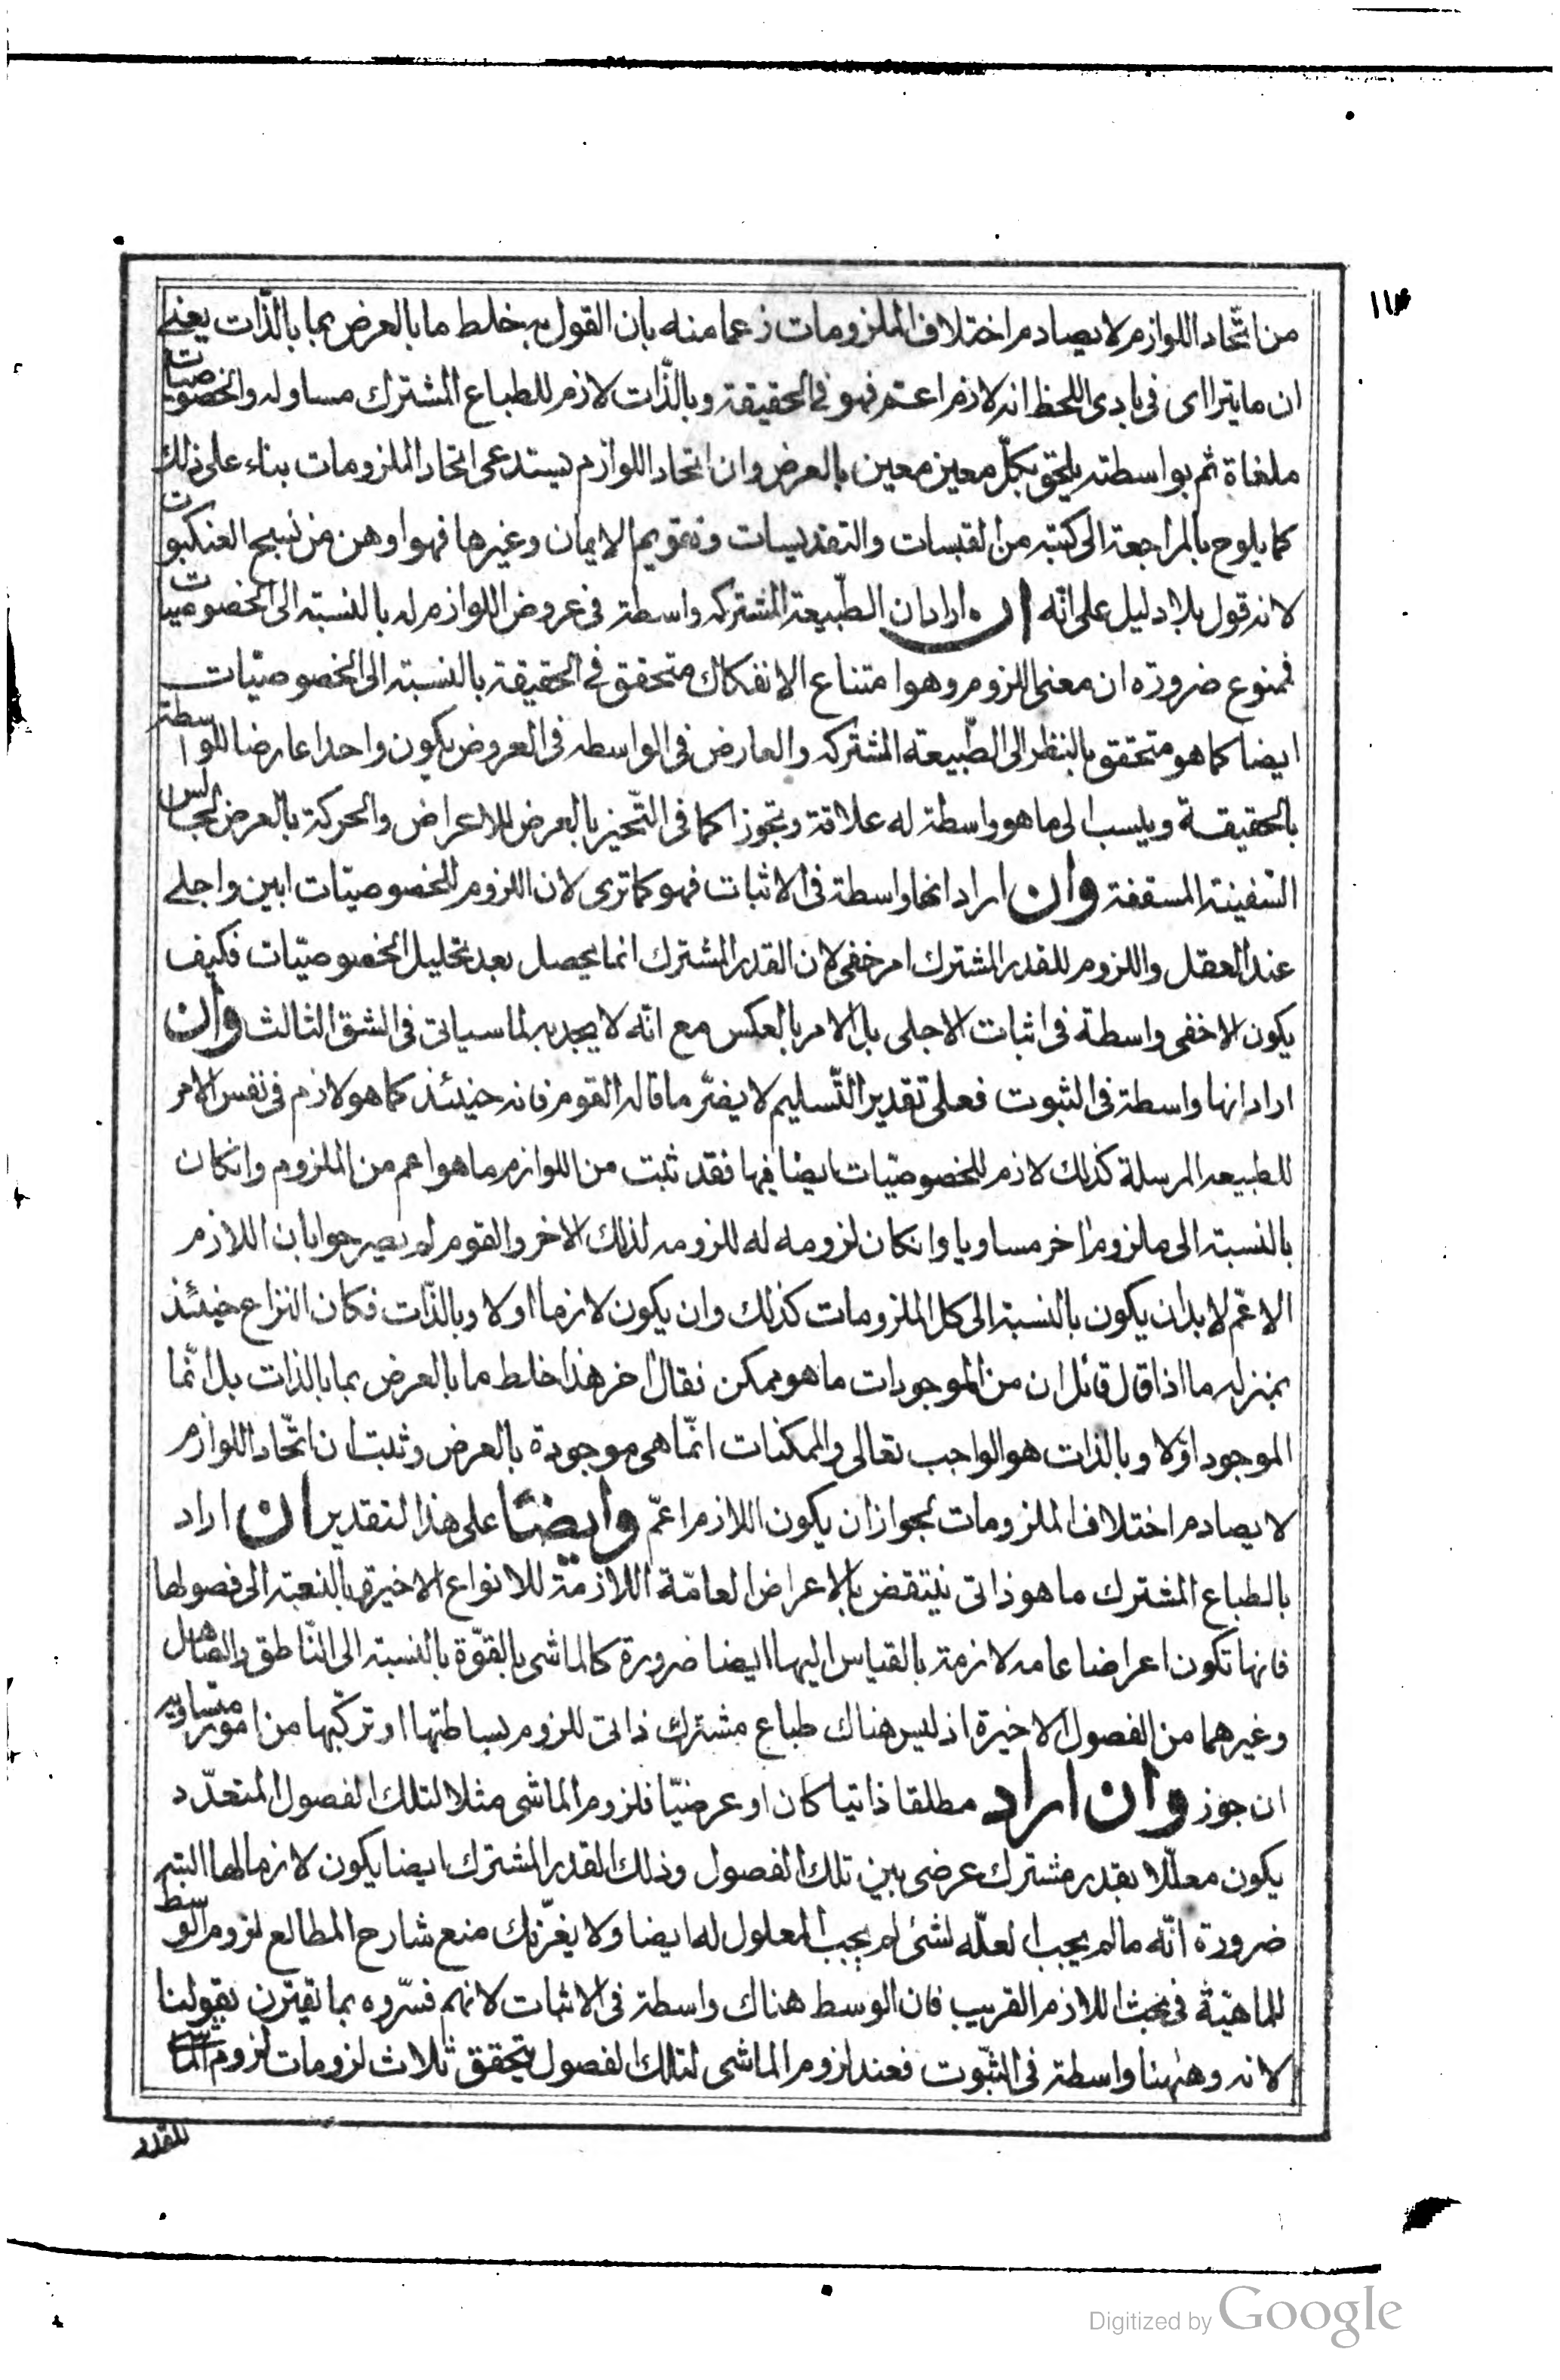 ١١٤
من اتّحاد اللوازم لا يصادم اختلاف الملزومات زعما منه بان القول به خلط ما بالعرض بما بالذّات يعنى
ان ما يتراای فى بادى اللحظ انه لازم اعم فهو فى الحقيقة وبالذّات لازم للطباع المشترك مساو له والخصوصيات
ملغاة ثم بواسطته يلحق بكلّ معين معين بالعرض وان اتحاد اللوازم يستدعى اتحاد الملزومات بناء على ذلك
كما يلوح بالمراجعة الى كتبه من القبسات والتقديسات وتقويم الايمان وغيرها فهو اوهن من نسج العنكبوت
لانه قول بلا دليل على انّه ان اراد ان الطّبيعة المشتركه واسطة فى عروض اللوازم له بالنسبة الى الخصوصيات
فممنوع ضرورة ان معنى اللزوم وهو امتناع الانفكاك متحقق فى الحقيقة بالنسبة الى الخصوصيّات
ايضا كما هو متحقق بالنظر الى الطّبيعة المشتركه والعارض فى الواسطه فى العروض يكون واحدا عارضا للواسطة
بالحقيقة وينسب الى ما هو واسطة له علاقة وتجوزا كما فى التّحيز بالعرض للاعراض والحركة بالعرض لجالس
السّفينة المسقفة وان اراد انها واسطة فى الاثبات فهو كما ترى لان اللزوم للخصوصيّات ابين واجلى
عند العقل واللزوم للقدر المشترك امر خفى لان القدر المشترك انما يحصل بعد تحليل الخصوصيّات فكيف
يكون الاخفى واسطة فى اثبات الاجلى بل الامر بالعكس مع انّه لا يجديه لما سياتى فى الشق الثالث وان
اراد انها واسطة فى الثبوت فعلى تقدير التّسليم لا يضرّ ما قاله القوم فانه حينئذ كما هو لازم فى نفس الامر
للطبيعه المرسلة كذلك لازم للخصوصيّات ايضا فيها فقد ثبت من اللوازم ما هو اعم من الملزوم وانكان
بالنسبة الى ملزوم اخر مساويا وانكان لزومه له للزومه لذلك الاخر والقوم لم يصرحوا بان اللازم
الاعّم لا بد ان يكون بالنسبة الى كل الملزومات كذلك وان يكون لازما اولا وبالذّات فكان النزاع حينئذ
بمنزله ما اذا قال قائل ان من الموجودات ما هو ممكن فقال اخر هذا خلط ما بالعرض بما بالذات بل انّما
الموجود اوّلا وبالذات هو الواجب تعالى والممكنات انّما هى موجودة بالعرض وثبت ان اتّحاد اللوازم
لا يصادم اختلاف الملزومات لجواز ان يكون اللازم اعمّ وايضًا على هذا لتقدير ان اراد
بالطباع المشترك ما هو ذاتى ينتقض بالاعراض العامّة اللازمة للانواع الاخيرة بالنسبة الى فصولها
فانها تكون اعراضا عامه لازمة بالقياس اليها ايضا ضرورة كالماشى بالقوّة بالنسبة الى النّاطق والصاهل
وغيرهما من الفصول الاخيرة اذ ليس هناك طباع مشترك ذاتى للزوم بساطتها او تركّبها من امور متساويه
ان جوز وان اراد مطلقا ذاتيا كان او عرضيّا فلزوم الماشى مثلا لتلك الفصول المتعدّد
يكون معلّلا بقدر مشترك عرضى بين تلك الفصول وذلك القدر المشترك ايضا يكون لازما لها البته
ضرورة انّه ما لم يجب العلّه لشئ لم يجب المعلول له ايضا ولا يغرّنك منع شارح المطالع لزوم الوسط
للماهيّة فى بحث اللازم القريب فان الوسط هناك واسطة فى الاثبات لانهم فسّروه بما يقترن بقولنا
لانه وههنا واسطة فى الثّبوت فعند لزوم الماشى لتلك الفصول يتحقق ثلاث لزومات لزوم الماشى
للقدر
Digitized by Google